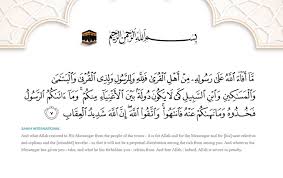 بِسْمِ اللَّهِ الرَّحْمَٰنِ الرَّحِيمِ
مَّا أَفَاءَ اللَّهُ عَلَىٰ رَسُولِهِ مِنْ أَهْلِ الْقُرَىٰ فَلِلَّهِ وَلِلرَّسُولِ وَلِذِي الْقُرْبَىٰ وَالْيَتَٰمَىٰ
وَالْمَسَٰكِينِ وَابْنِ السَّبِيلِ كَيْ لَا يَكُونَ دُولَةً بَيْنَ الْأَغْنِيَاءِ مِنكُمْ ۚ وَمَا ءَاتَىٰكُمُ الرَّسُولُ
فَخُذُوهُ وَمَا نَهَىٰكُمْ عَنْهُ فَانتَهُوا ۚ وَاتَّقُوا اللَّهَ ۖ إِنَّ اللَّهَ شَدِيدُ الْعِقَابِ ٧
SAHIH INTERNATIONAL
And what Allah restored to His Messenger from the people of the towns - it is for Allah and for the Messenger and for [his] near relatives
and orphans and the [stranded] traveler - so that it will not be a perpetual distribution among the rich from among you. And whatever the
Messenger has given you - take; and what he has forbidden you - refrain from. And fear Allah; indeed, Allah is severe in penalty.